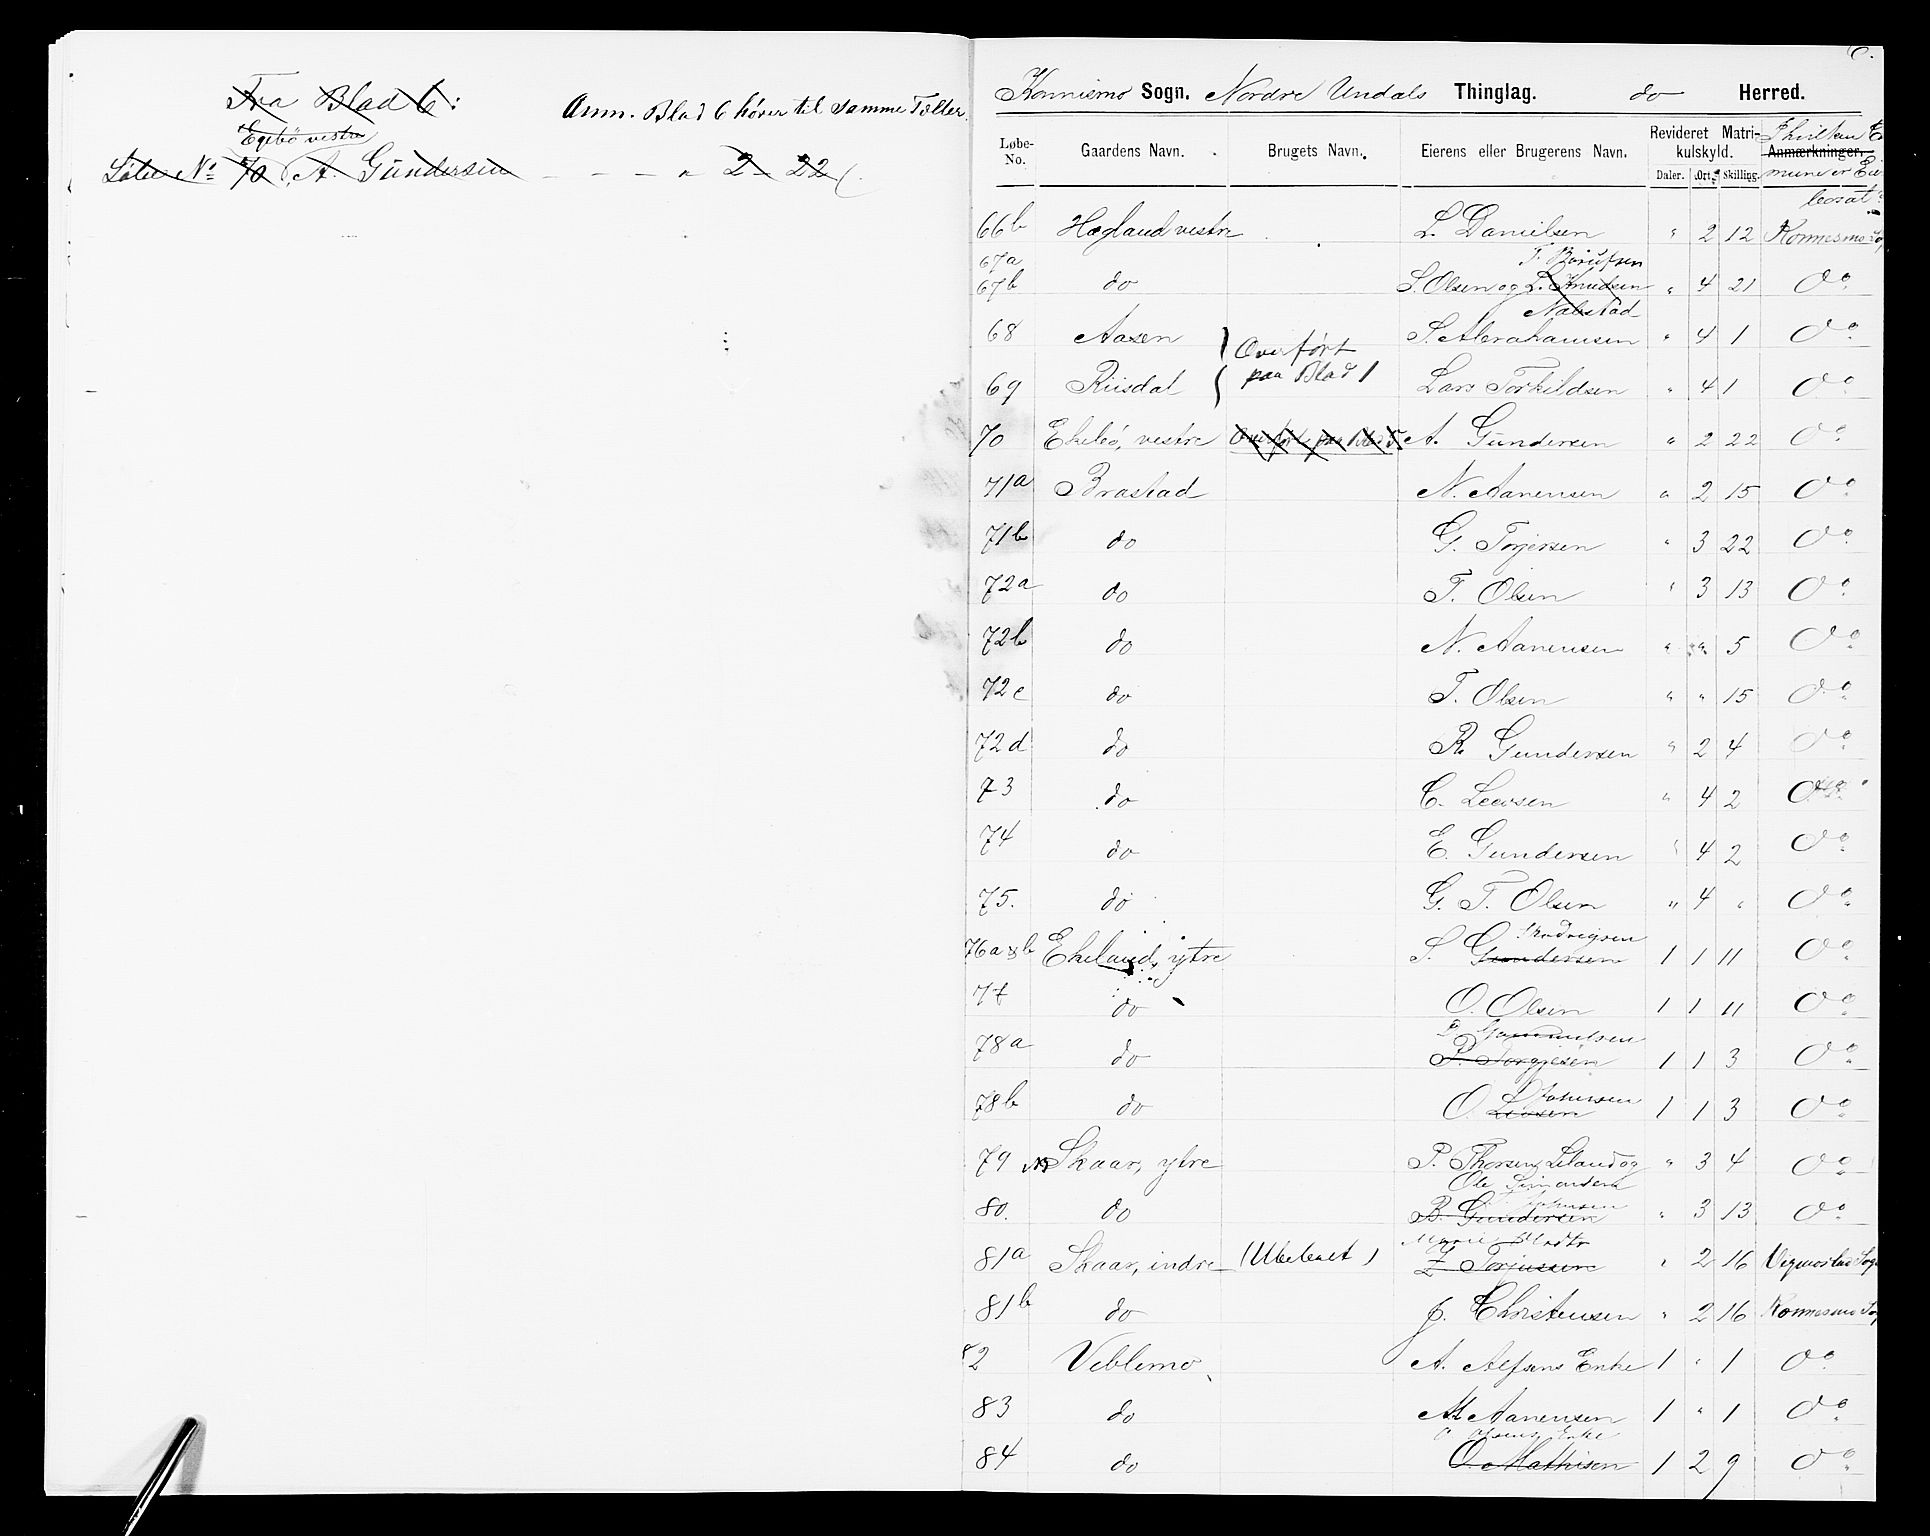 Fra Blad 6:
Anm. Blad 6 hører til samme Tæller.
Egebö vestre
Löbe No 70, A. Gundersen - - - " 2 - 22
6.
Konnismo Sogn. Nordre Undals Thinglag. do Herred.
Løbe-No. Gaardens Navn. Brugets Navn. Eierens eller Brugerens Navn. Revideret Matrikulskyld. Daler. Ort. Skilling. Anmærkninger.
66b Hægland vestre L. Danielsen " 2 12 Konnesmo
67a
67b do S. Olsen og L. Knudsen " 4 21 Do
68 Aasen S. Abrahamsen " 4 1 Do
Overført paa Blad 1
69 Riisdal Lars Torkildsen " 4 1 Do
70 Ekebö, vestre Overført paa Blad 5. A. Gundersen " 2 22 Do
71a Brastad N. Aanensen " 2 15 Do
71b do G. Torjersen " 3 22 Do
72a do T. Olsen " 3 13 Do
72b do N. Aanensen " " 5 Do
72c do T. Olsen " " 15 Do
72d do R. Gundersen " 2 4 Do
73 do C. Leersen " 4 2 Do
74 do E. Gundersen " 4 2 Do
75. do G. T. Olsen " 4 " Do
76a & b Ekeland, ytre S. Gundersen 1 1 11 Do
77 do O. Olsen 1 1 11 Do
78a do P. Torgjesen 1 1 3 Do
78b do O. Johnsen 1 1 3 Do
79 Skaar, ytre P. Thorsen Leland og " 3 4 Do
Ole Simonsen
80. do B. Gundersen " 3 13 Do
81a Skaar, indre (Ubeboet) Z Torjussen " 2 16 Vigmostad Sogn
81b do J. Christensen " 2 16 Konnesmo
82 Veblemo A. Alfsens Enke 1 " 1 Do
83 do M Aanensen 1 " 1 Do
Olsens Enke
84 do O. Mathisen 1 2 9 Do